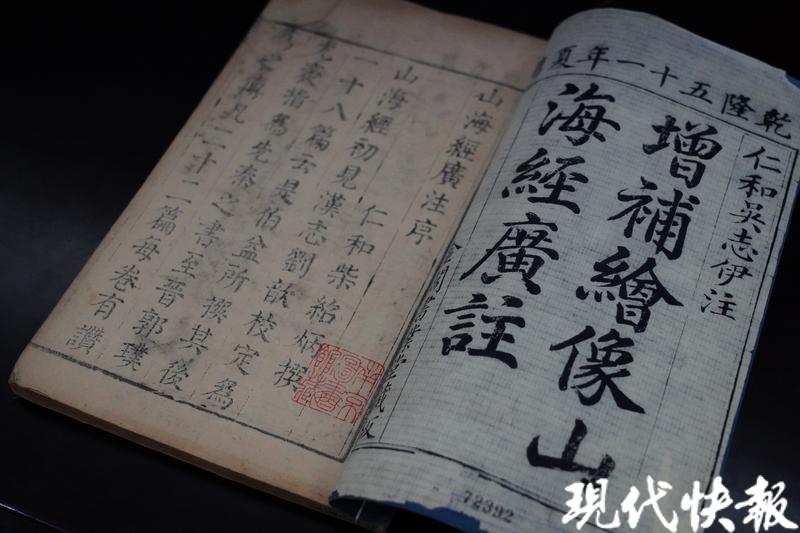 乾隆五十一年夏
仁和吳志伊注
增補繪像山
海經廣註
金閶書業堂藏版
72392
山海經廣注序
仁和柴紹炳撰
山海經初見漢志劉歆校定為
一十八篇云是伯益所撰其後
尤袤指為先秦之書至晉郭璞
為之傳凡二十二篇每卷有讚
現代快報